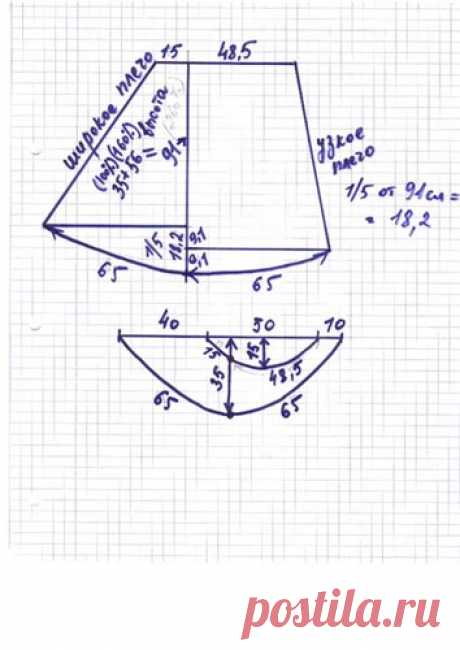 15 48,5
широкое плечо
(100%) (160%)
35+56 =
высота
91
узкое
плечо
1/5 от 91 см =
= 18,2
1/5
18,2
9,1
9,1
65 65
40 50 10
15 15
35 48,5
65 65
postila.ru